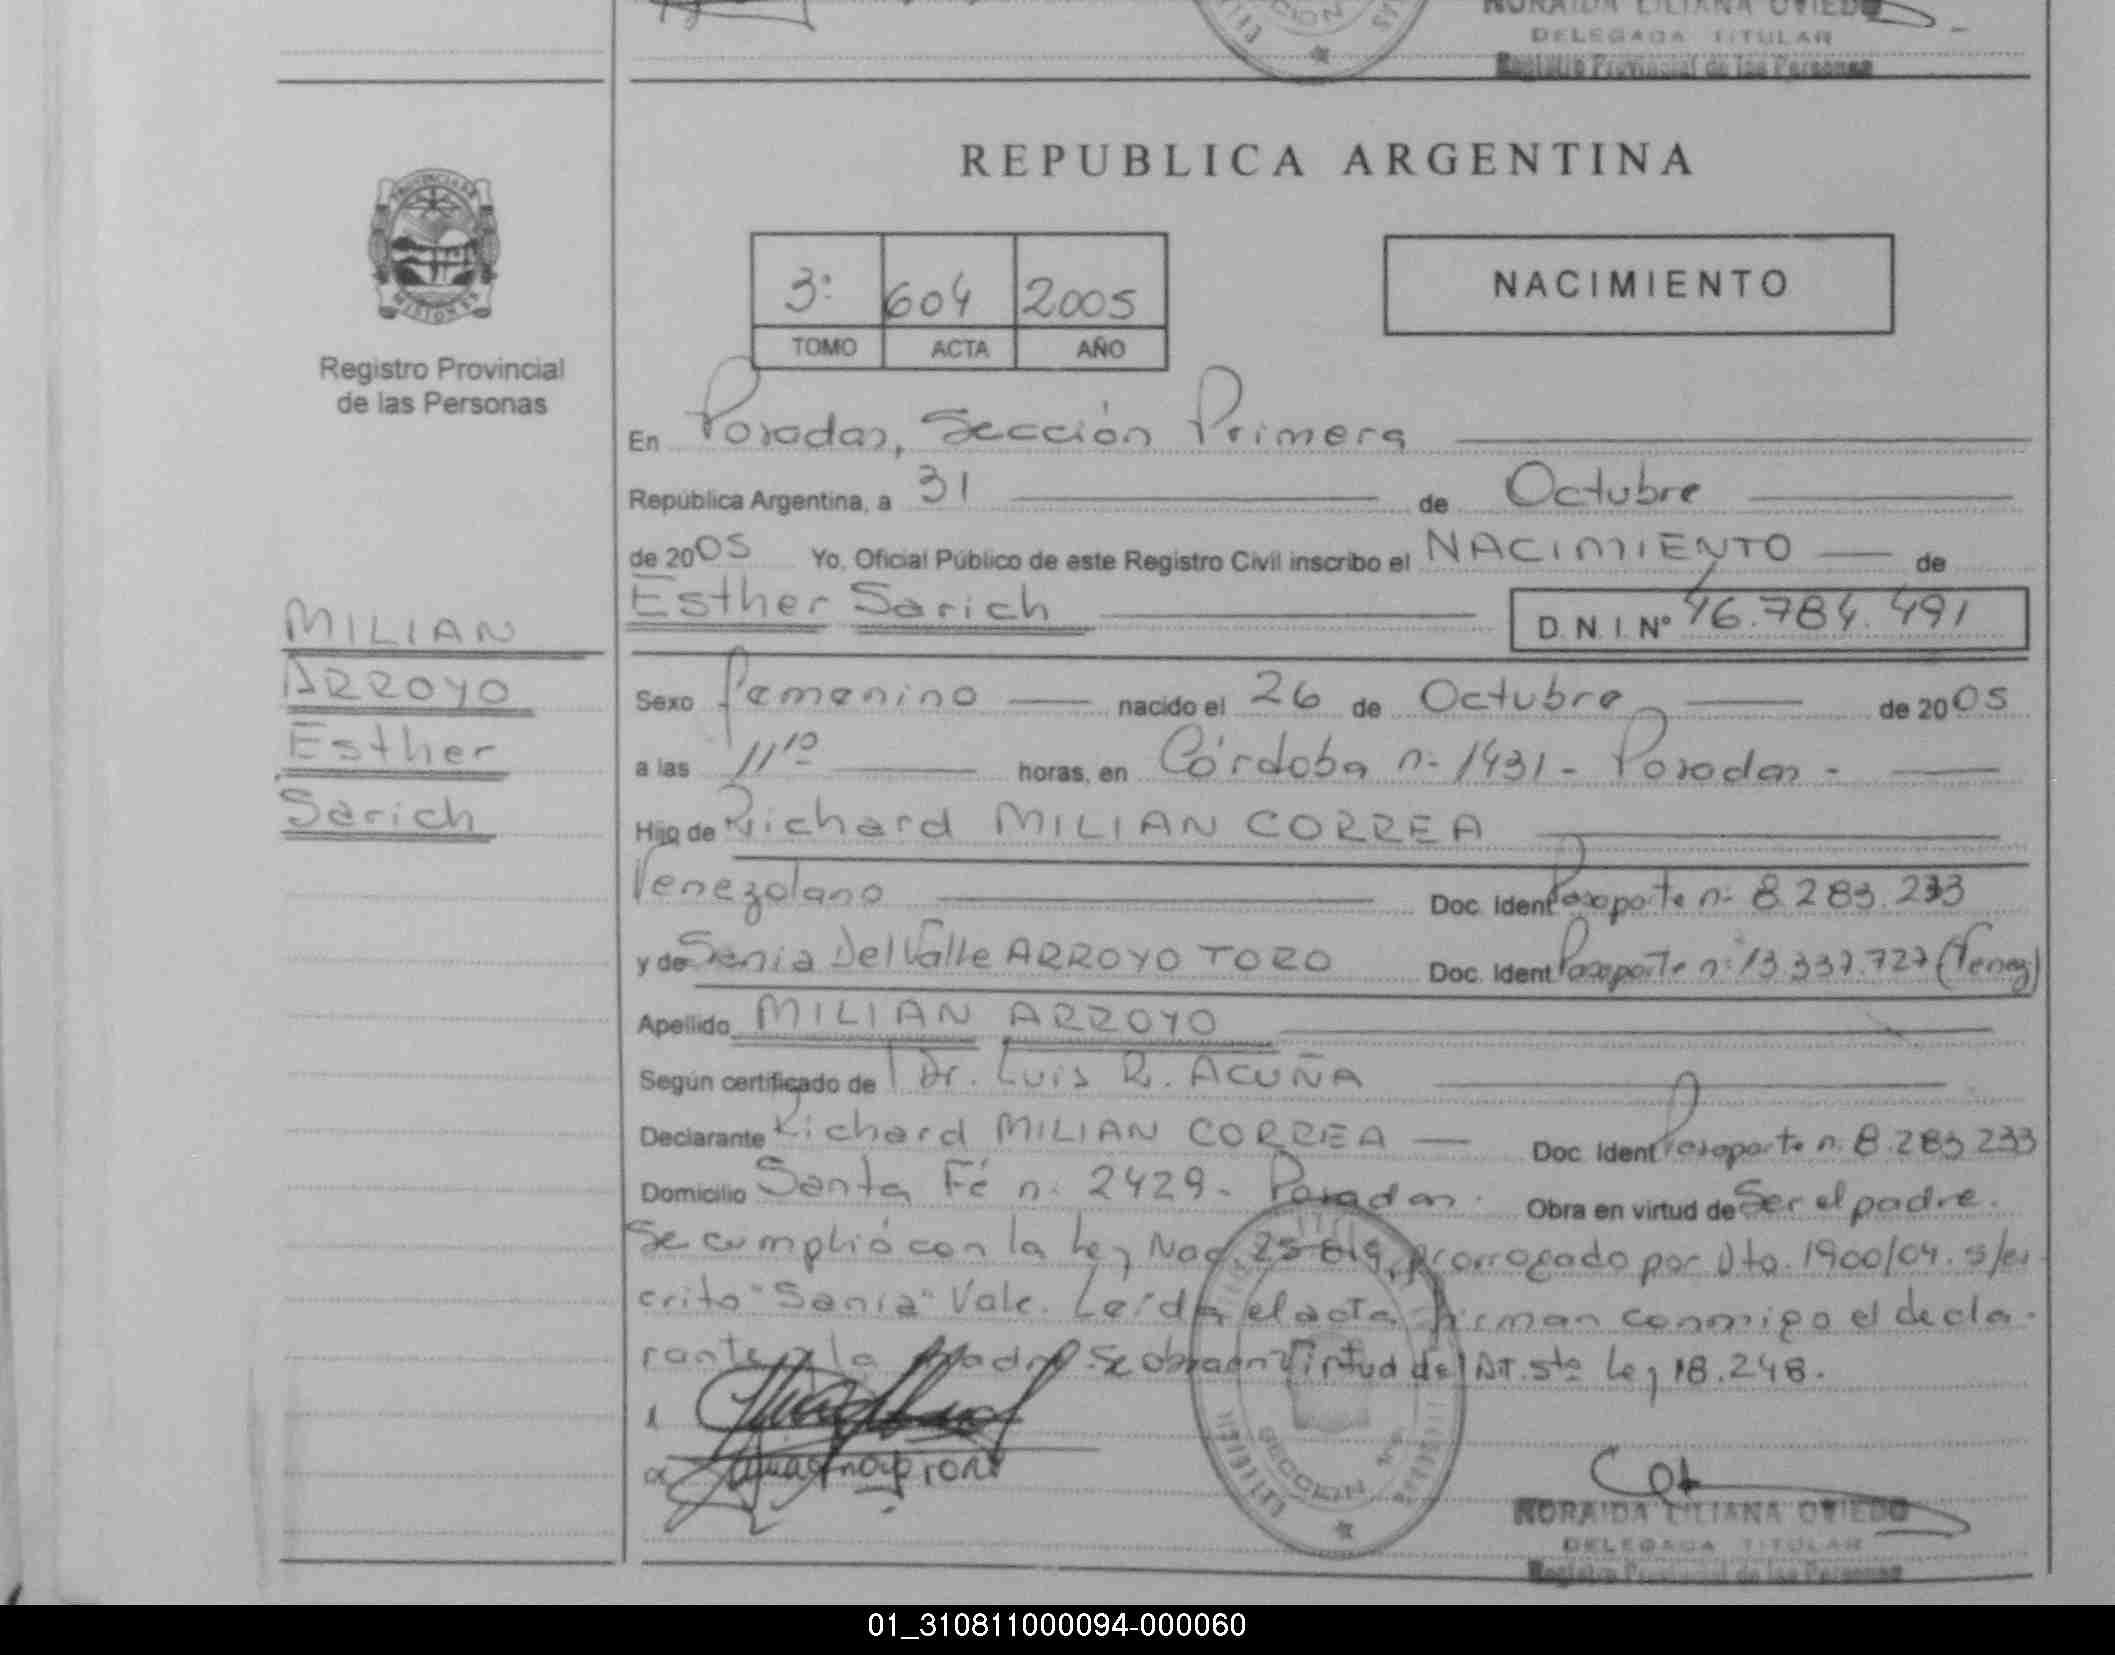 NORAIDA LILIANA OVIEDO
DELEGADA TITULAR
Registro Provincial de las Personas
PROVINCIA DE
MISIONES
Registro Provincial
de las Personas
MILIAN
ARROYO
Esther
Sarich
REPUBLICA ARGENTINA
3º 604 2005
TOMO ACTA AÑO
NACIMIENTO
En Posadas, Sección Primera
República Argentina, a 31 de Octubre
de 2005 Yo, Oficial Público de este Registro Civil inscribo el NACIMIENTO de
Esther Sarich D.N.I. Nº 46.784.491
Sexo femenino nacido el 26 de Octubre de 2005
a las 11 10 horas, en Córdoba nº 1431 - Posadas -
Hijo de Richard MILIAN CORREA
Venezolano Doc. Ident Pasaporte nº 8.283.233
y de Sania Del Valle ARROYO TORO Doc. Ident Pasaporte nº 13.337.727 (Venez)
Apellido MILIAN ARROYO
Según certificado de Dr. Luis R. ACUÑA
Declarante Richard MILIAN CORREA Doc. Ident Pasaporte nº 8.283.233
Domicilio Santa Fé nº 2429 - Posadas. Obra en virtud de Ser el padre.
Se cumplió con la Ley Nac. 25.819, prorrogado por Dto. 1900/04. s/es
crito "Sania" Vale. Leída el acta firman conmigo el decla-
rante y la Madre. Se obra en Virtud del Art. 5to Ley 18.248.
SECCION
NORAIDA LILIANA OVIEDO
DELEGADA TITULAR
Registro Provincial de las Personas
01_310811000094-000060